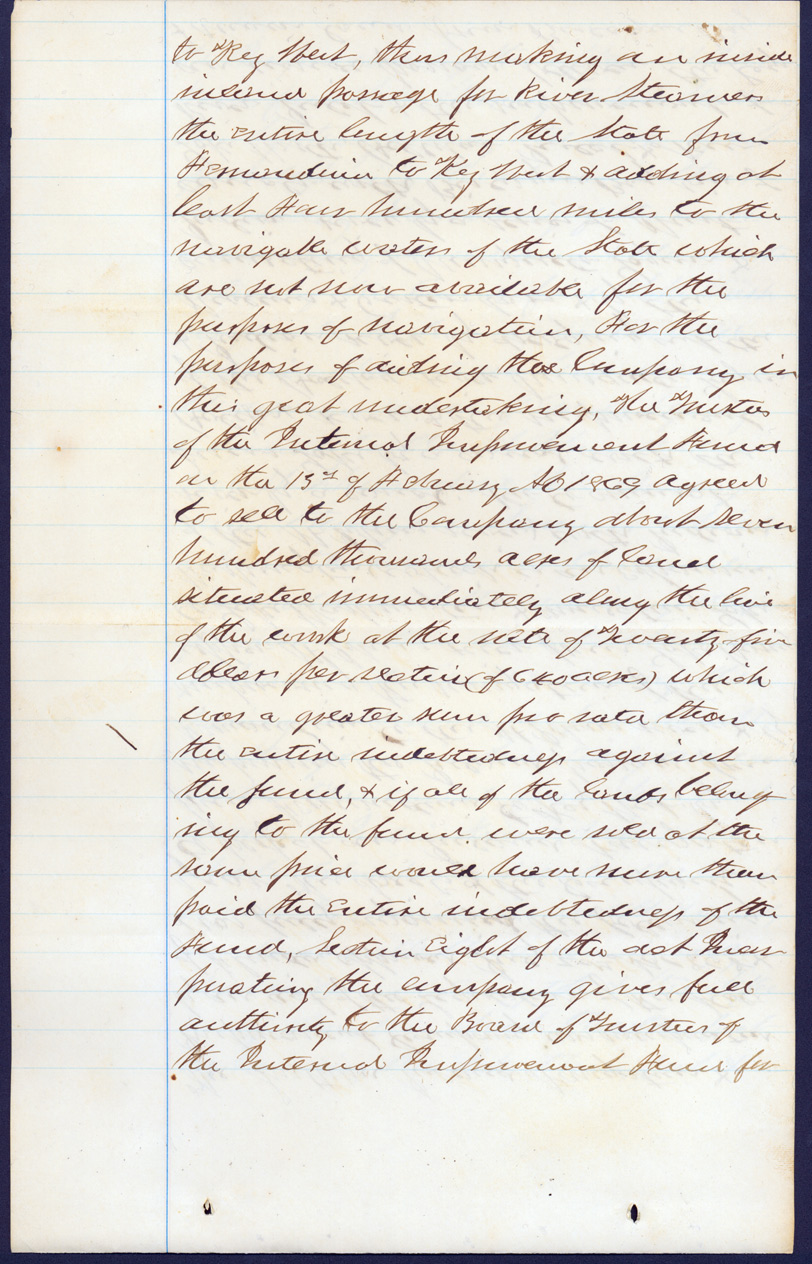 to Key West, thus making an inside
inland passage for River Steamers
the entire length of the State from
Fernandina to Key West & adding at
least Four hundred miles to the
navigable waters of the State which
are not now available for the
purposes of navigation, For the
purposes of aiding the Company in
this great undertaking, The Trustees
of the Internal Improvement Fund
on the of February AD 1869 agreed
to sell to the Company about seven
hundred thousand acres of land
situated immediately along the line
of the work at the rate of Twenty-five
dollars per section (of 640 acres) which
was a greater sum pro rata than
the entire indebtedness against
the fund, & if all of the lands belong
ing to the fund were sold at the
same price would have more than
paid the entire indebtedness of the
Fund, Section Eight of the act Incor
porating the company gives full
authority to the Board of Trustees of
the Internal Improvement Fund for